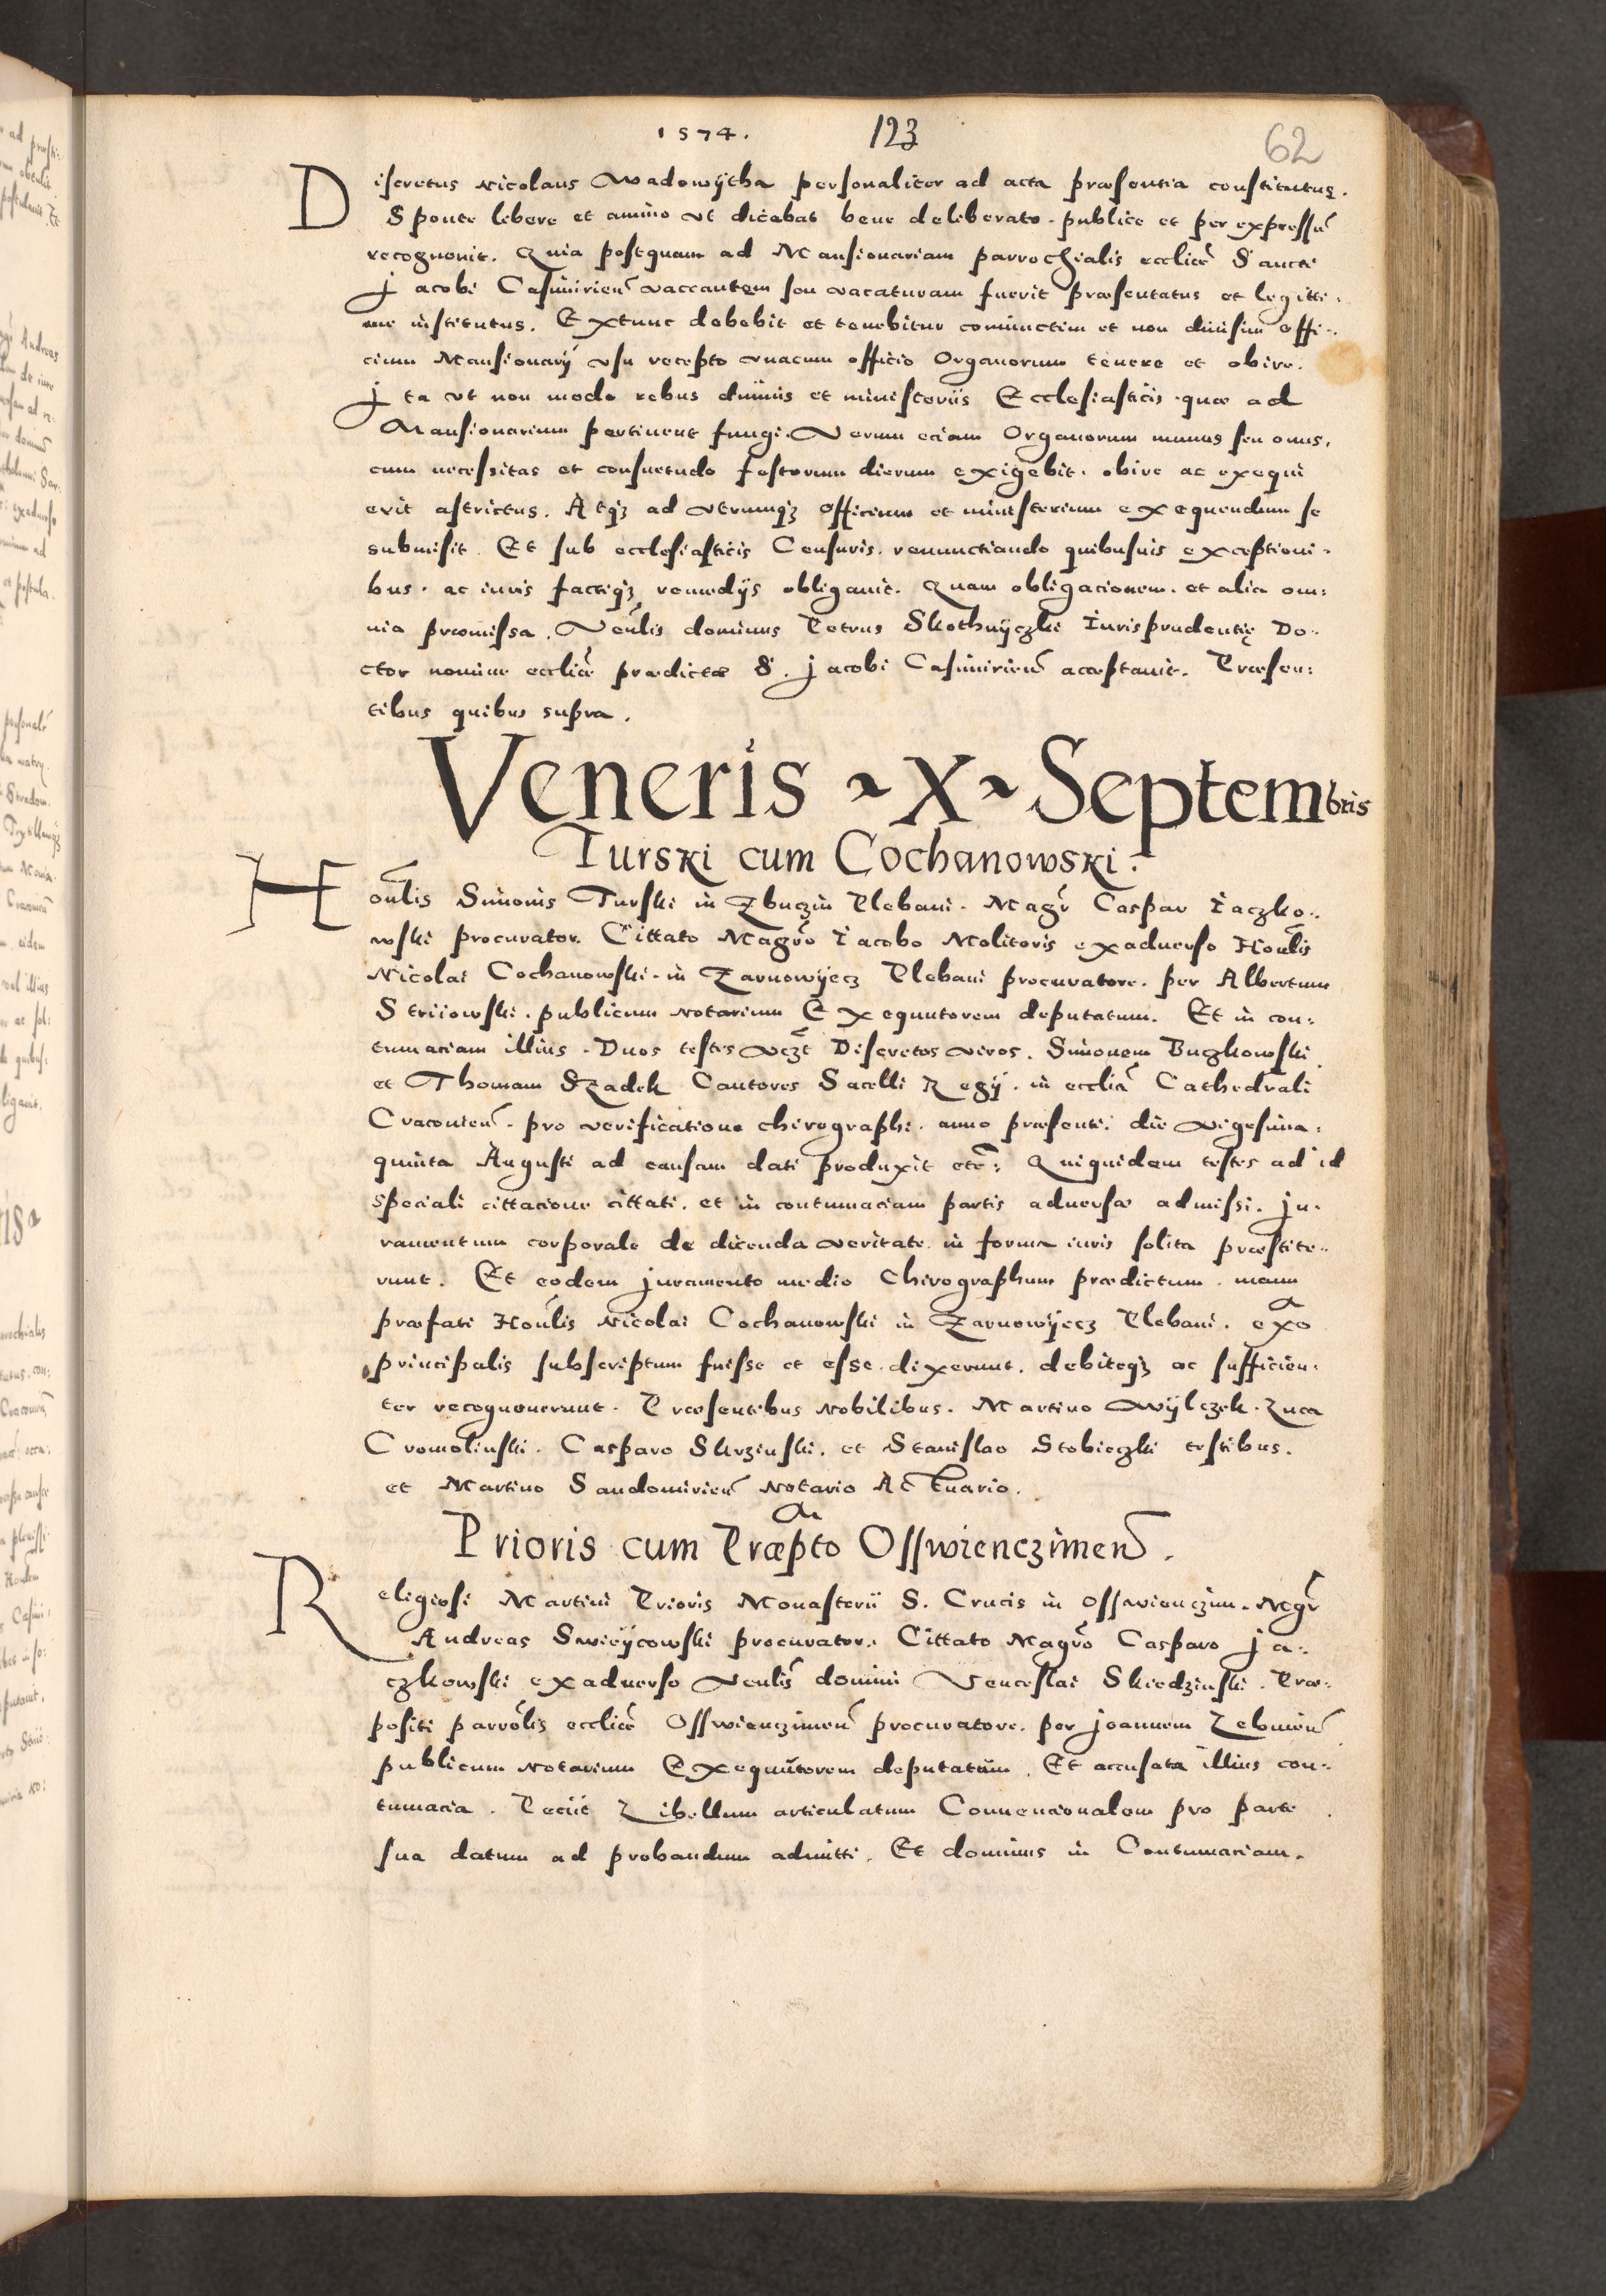 1574. 123 62
Discretus Nicolaus Wadowÿtha personaliter ad acta præsentia constitutus.
Sponte libere et animo ut dicebat bene deliberato. publice et per expressū
recognovit. Quia postquam ad Mansionariam parrochialis ecclīæ Sancti
Jacobi Casimirien̄ vaccantem seu vacaturam fuerit præsentatus et legitti:
me institutus. Extunc debebit et tenebitur coniunctim et non divisim offi:
cium Mansionarÿ usu recepto vnacum officio Organorum tenere et obire.
Jta ut non modo rebus divinis et ministeriis Ecclesiasticis quæ ad
Mansionarium pertinent fungi. Verum eciam Organorum munus seu onus,
cum necessitas et consuetudo festorum dierum exigebit. obire ac exequi
erit astrictus. Atqꝫ ad vtrumqꝫ officium et ministerium exequendum se
submisit. Et sub ecclesiasticis Censuris. renunctiando quibusuis exceptioni:
bus. ac iuris factiqꝫ remedÿs obligauit. Quam obligacionem. et alia om:
nia præmissa. Ven̄lis dominus Petrus Skothnÿczki Iurisprudentię Do:
ctor nomine ecclīæ prædictæ S. Jacobi Casimirien̄ acceptauit. Præsen:
tibus quibus supra.
Veneris ~ X ~ Septembris
Turski cum Cochanowski.
Hon̄lis Simonis Turski in Zbuczin Plebani. Magr̄ Caspar Iaczko:
wski procurator. Cittato Magrō Iacobo Molitoris exaduerso Hon̄lis
Nicolai Cochanowski. in Zarnowÿecz Plebani procuratore. per Albertum
Striiowski. publicum notarium Exequutorem deputatum. Et in con:
tumaciam illius. Duos testes vcꝫt Discretos viros. Simonem Buczkowski
et Thomam Szadek Cantores Sacelli Regÿ. in ecclīa Cathedrali
Cracouien̄. pro verificatione chirographi. anno præsenti. die vigesima:
quinta Augusti ad causam dati produxit etc̄: Quiquidem testes ad id
speciali cittacione cittati. et in contumaciam partis aduersæ admissi. Ju:
ramentum corporale de dicenda veritate. in forma iuris solita præstite:
runt. Et eodem juramento medio Chirographum prædictum. manu
præfati Hon̄lis Nicolai Cochanowski in Zarnowÿecz Plebani. exa
principalis subscriptum fuisse et esse dixerunt. debiteqꝫ ac sufficien:
ter recognouerunt. Præsentibus Nobilibus. Martino Wÿlczek. Luca
Cromolinski. Casparo Skrzinski. et Stanislao Stobieczki testibus.
et Martino Sandomirien̄ Notario Actuario.
Prioris cum Præpto Osswienczimen̄.
Religiosi Martini Prioris Monasterii S. Crucis in Osswienczim. Mgr̄
Andreas Swieÿcowski procurator. Cittato Magrō Casparo Ja:
czkowski exaduerso Ven̄lis domini Venceslai Skiedzinski. Præ:
positi parrōlis ecclīæ Osswienczimen̄ procuratore. per Joannem Zebnien̄
publicum notarium Exequutorem deputatum. Et accusata illius con:
tumacia. Peciit Libellum articulatum Conuencionalem pro parte
sua datum ad probandum admitti. Et dominus in Contumaciam.